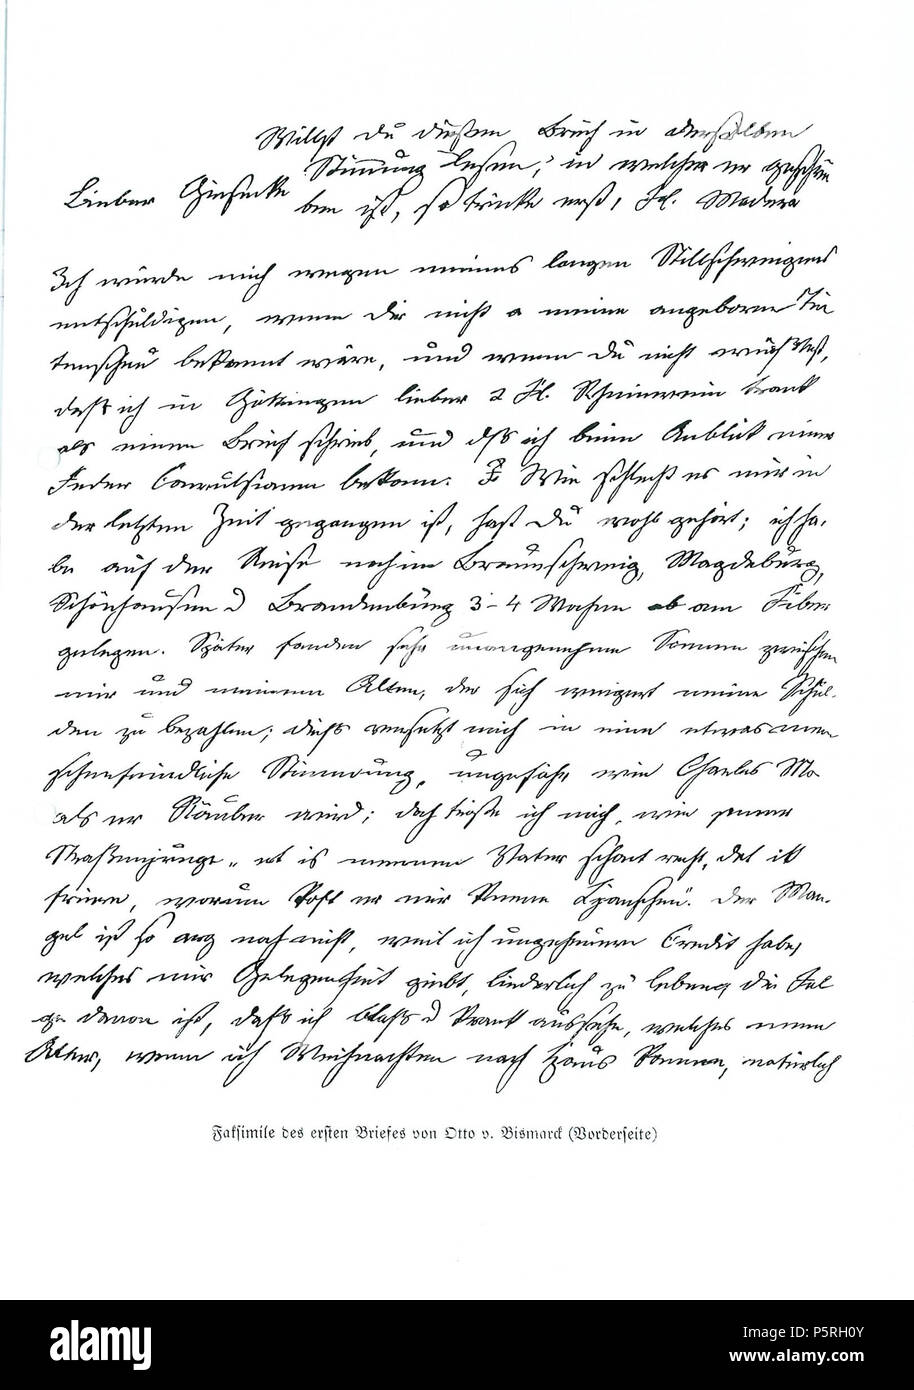 Willst du diesen Brief in derselben
Stimmung lesen, in welcher er geschrie
Lieber Giesecke
ben ist, so trinke erst 1 Fl. Madera
Ich würde mich wegen meines langen Stillschweigens
entschuldigen, wenn dir nicht meine angeborne Tin
tenscheu bekannt wäre, und wenn du nicht wüßtest,
daß ich in Göttingen lieber 2 Fl. Rheinwein trank
als einen Brief schrieb, und daß ich beim Anblick einer
Feder Convulsionen bekam. Wie schlecht es mir in
der letzten Zeit gegangen ist, hast du wohl gehört; ich ha-
be auf der Reise nach in Braunschweig, Magdeburg,
Schönhausen Brandenburg 3-4 Wochen am Fiber
gelegen. Später fanden sehr unangenehme Scenen zwischen
mir und meinem Alten, der sich weigert meine Schul-
den zu bezahlen; dieß versetzt mich in eine etwas men
schenfeindliche Stimmung, ungefähr wie Charles Mo
als er Räuber wird; doch tröste ich mich, wie jener
Straßenjunge „et is meinem Vater schont recht, det ik
friere, worum koft er mir keene Hanschen“. Der Man-
gel ist so arg noch nicht, weil ich ungeheuern Credit habe,
welches mir Gelegenheit giebt, liederlich zu leben, die Fol
ge davon ist, daß ich blaß krank aussehe, welches mein
Alter, wenn ich Weihnachten nach Haus komme, natürlich
Faksimile des ersten Briefes von Otto v. Bismarck (Vorderseite)
alamy
Image ID: P5RH0Y
www.alamy.com